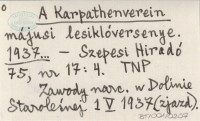 A Karpathenverein
májusi lesiklóversenye.
1937... – Szepesi Hiradó
75, nr 17: 4. TNP
Zawody narc. w Dolinie
Staroleśnej 1 V 1937 (zjazd).